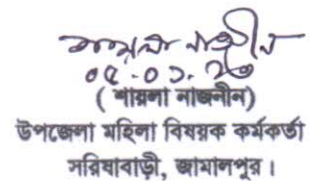 শায়লা নাজনীন
০৫.০১.২৩
( শায়লা নাজনীন)
উপজেলা মহিলা বিষয়ক কর্মকর্তা
সরিষাবাড়ী, জামালপুর।